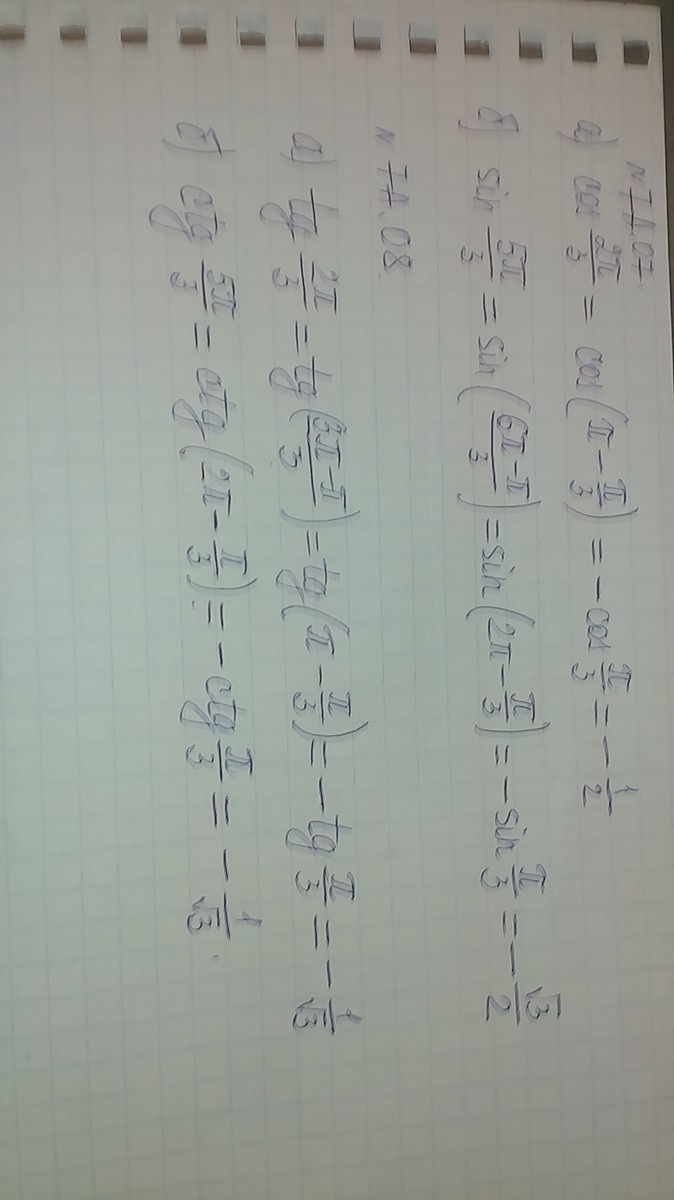 N 7A.07
а) cos 2π/3 = cos(π - π/3) = -cos π/3 = -1/2
б) sin 5π/3 = sin(6π-π/3) = sin(2π - π/3) = -sin π/3 = -√3/2
N 7A.08.
а) tg 2π/3 = tg(3π-π/3) = tg(π - π/3) = -tg π/3 = -1/√3
б) ctg 5π/3 = ctg(2π - π/3) = -ctg π/3 = -1/√3.